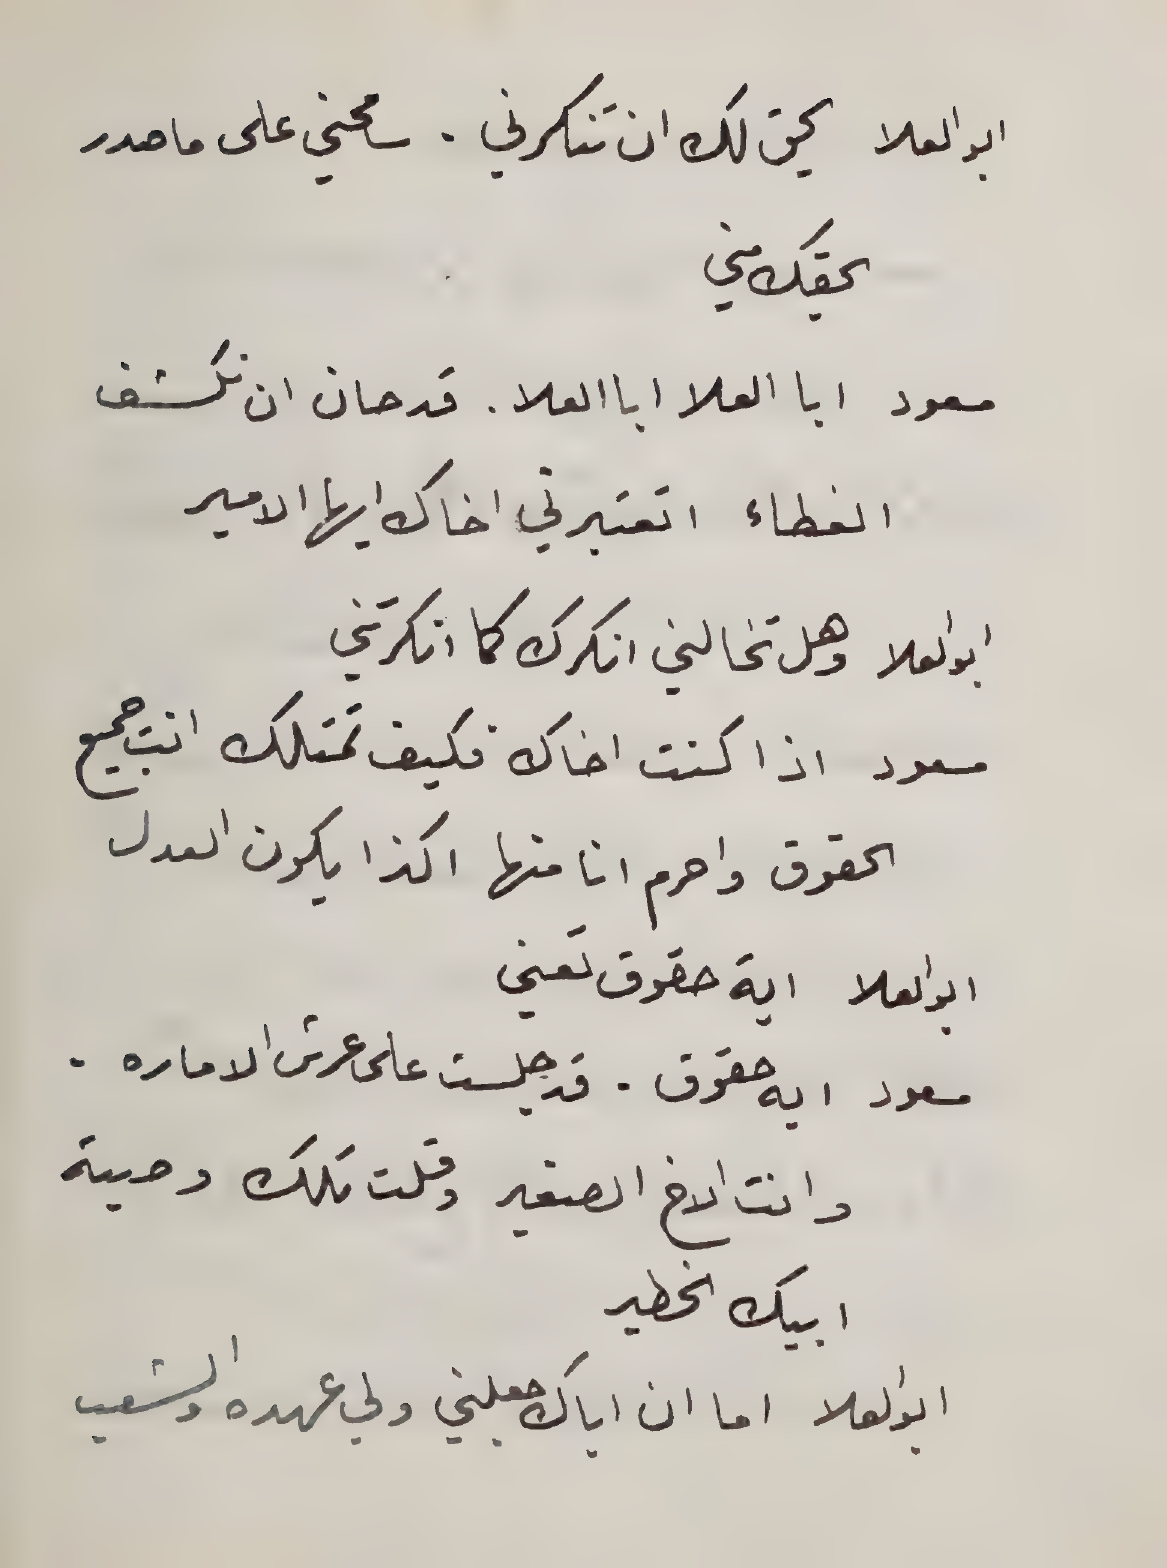 ابو العلا يحق لك ان تنكرني . سامحني على ما صدر
بحقك مني
مسعود ابا العلا ابا العلا . قد حان ان نكشف
الغطاء اتعتبرني اخاك ايها الامير
ابو العلا وهل تخالني انكرك كما انكرتني
مسعود اذا كنت اخاك فكيف تمتلك انت جميع
الحقوق واحرم انا منها اكذا يكون العدل
ابو العلا اية حقوق تعني
مسعود ايه حقوق . قد جلست على عرش الاماره .
وانت الاخ الصغير وقلت تلك وصية
ابيك الخطير
ابو العلا اما ان اباك جعلني ولي عهده والشعب